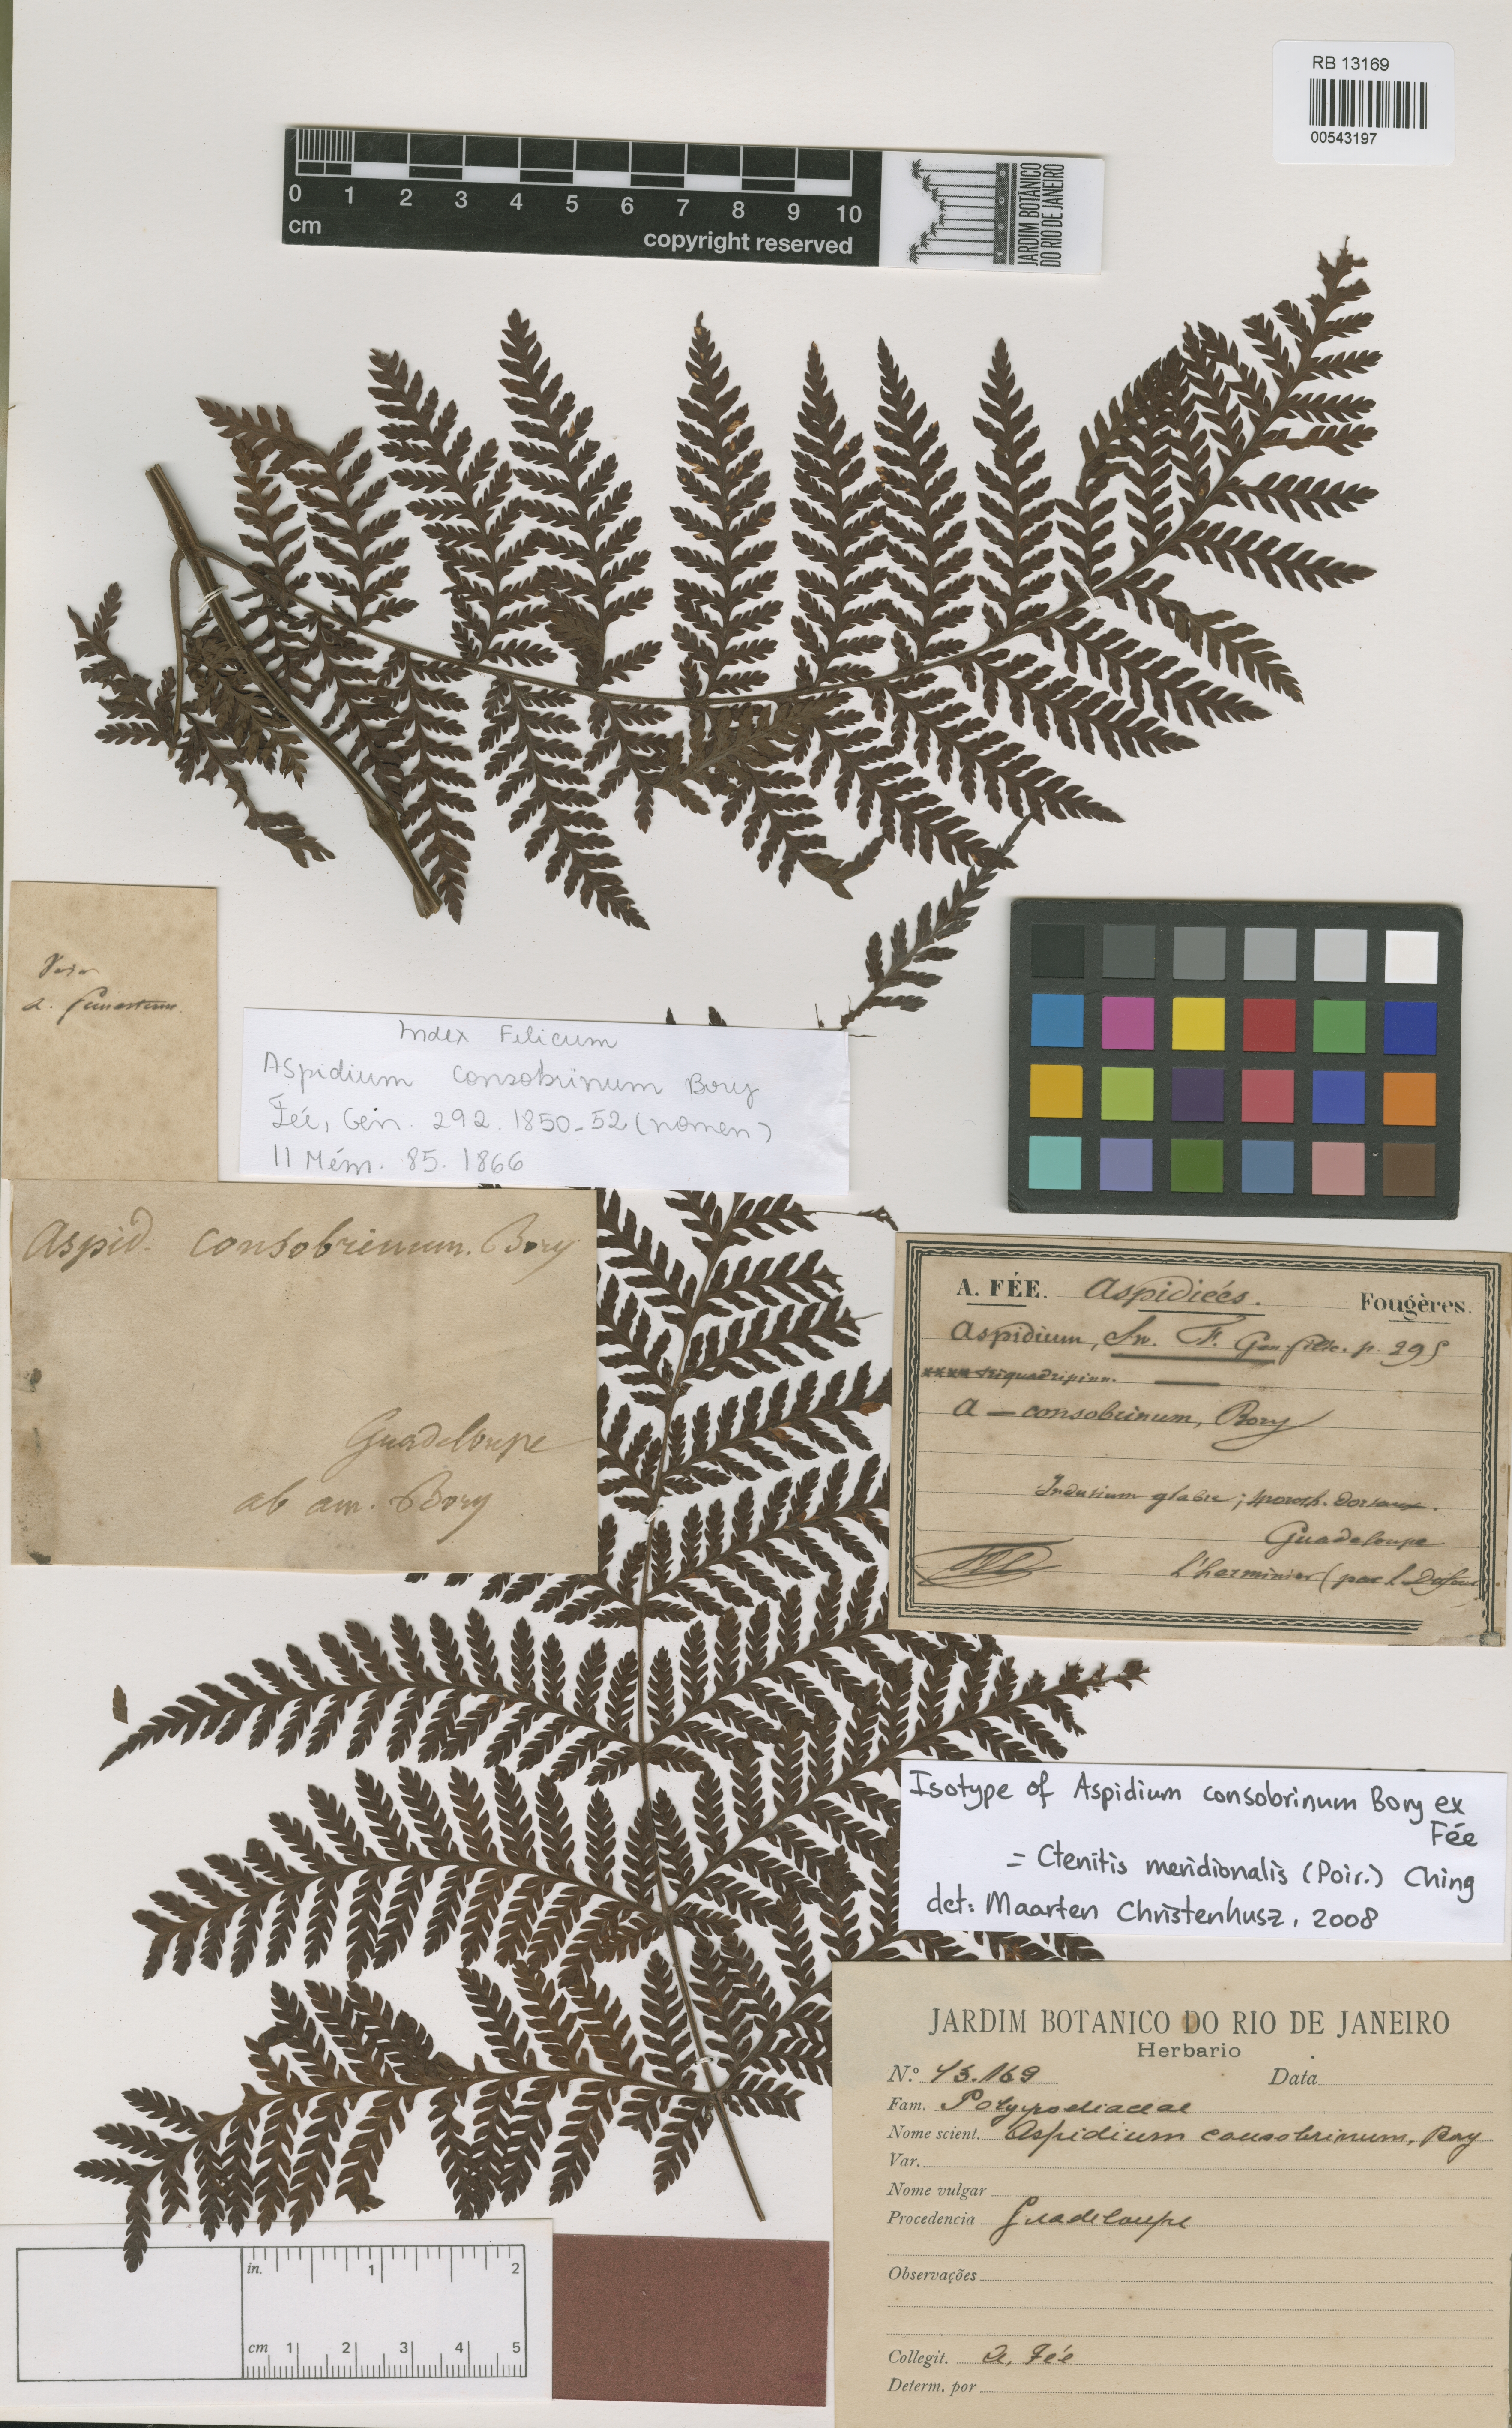 RB 13169
00543197
0 1 2 3 4 5 6 7 8 9 10
cm
copyright reserved
1808
JARDIM BOTÂNICO
DO RIO DE JANEIRO
Index Filicum
Aspidium consobrinum Bory
Fée, Gen. 292. 1850-52 (nomen)
11 Mém. 85. 1866
Aspid. consobrinum. Bory
Guadeloupe
ab am. Bory
A. FÉE. Aspidiées. Fougères.
Aspidium, Sw. F. Gen filic. p. 295
triquadripinn.
A — consobrinum, Bory
Indusium glabre; sporoth. dorsaux.
Guadeloupe
l'herminier (par L. Dufour)
Isotype of Aspidium consobrinum Bory ex
Fée
= Ctenitis meridionalis (Poir.) Ching
det: Maarten Christenhusz, 2008
JARDIM BOTANICO DO RIO DE JANEIRO
Herbario
N.º 13.169 Data
Fam. Polypodiaceae
Nome scient. Aspidium consobrinum, Bory
Var.
Nome vulgar
Procedencia Guadeloupe
Observações
Collegit. A. Fée
Determ. por
in. 1 2
cm 1 2 3 4 5